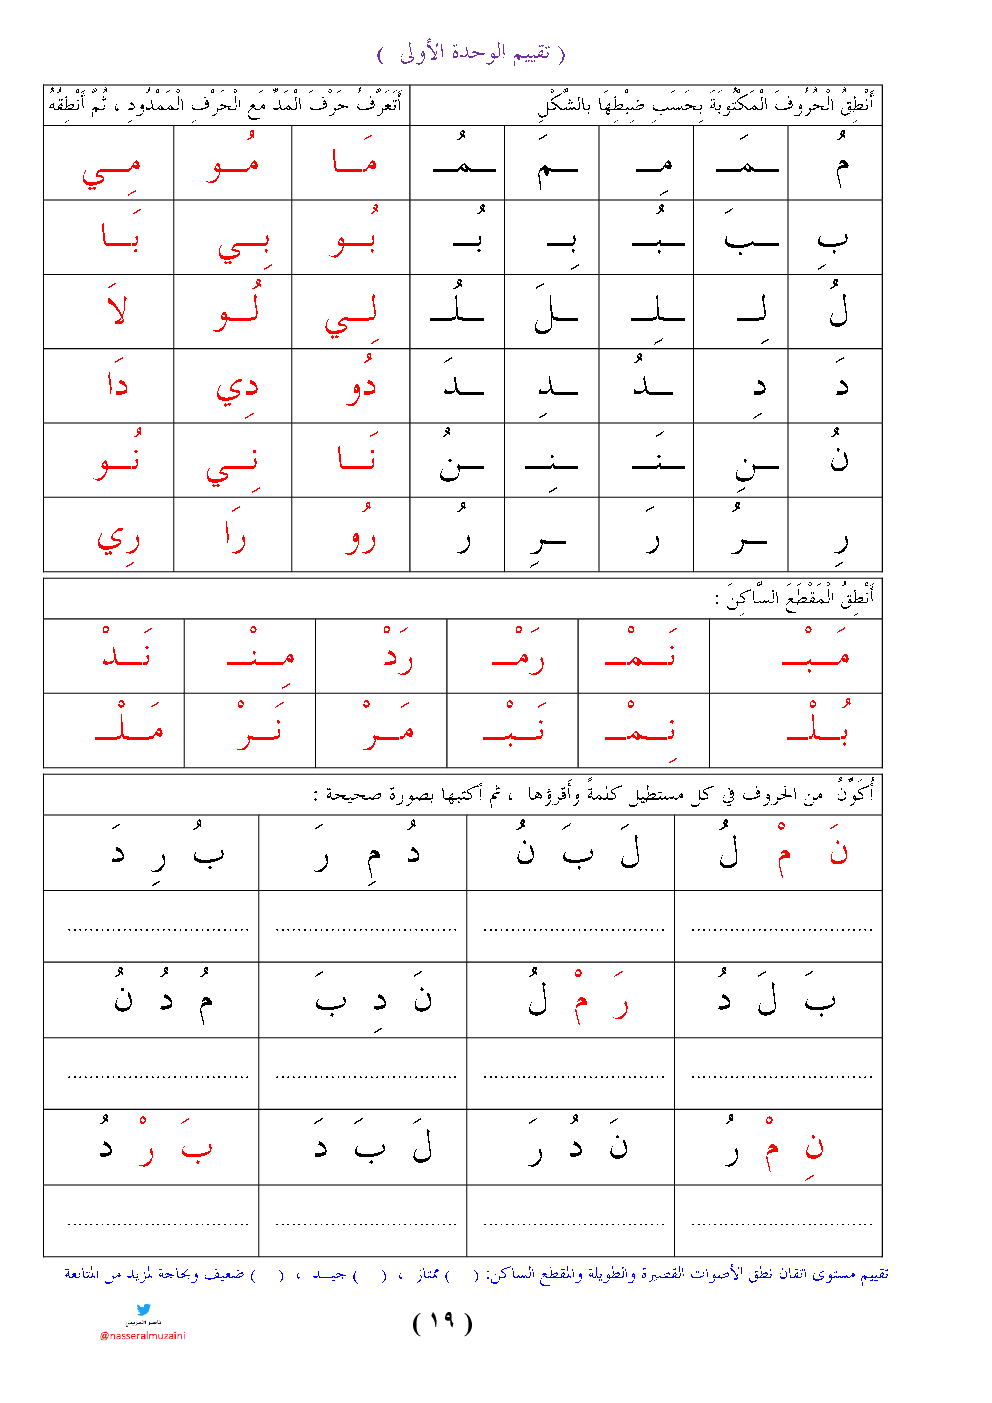 ( تقييم الوحدة الأولى )
أَنْطِقُ الْحُرُوفَ الْمَكْتُوبَةَ بِحَسَبِ ضِبْطِهَا بالشَّكْلِ أَتَعَرَّفُ حَرْفَ الْمَدِّ مَع الْحَرْفِ الْمَمْدُودِ ، ثُمَّ أَنْطِقُهُ
مُ ـمَـ مِـ ـمَ ـمُـ مَـا مُـو مِـي
بِ ـبَ ـبُـ بِـ بُـ بُـو بِـي بَـا
لُ لِـ ـلِـ ـلَ ـلُـ لِـي لُـو لاَ
دَ دِ ـدُ ـدِ ـدَ دُو دِي دَا
نُ ـنِ ـنَـ ـنِـ ـنُ نَـا نِـي نُـو
رِ ـرُ رَ ـرِ رُ رُو رَا رِي
أَنْطِقُ الْمَقْطَعَ السَّاكِنَ :
مَـبْـ نَـمْـ رَمْـ رَدْ مِـنْـ نَـدْ
بُـلْـ نِـمْـ نَـبْـ مَـرْ نَـرْ مَـلْـ
أُكَوِّنُ من الحروف في كل مستطيل كلمةً وأَقرؤها ، ثم أكتبها بصورة صحيحة :
نَ مْ لُ لَ بَ نُ دُ مِ رَ بُ رِ دَ
.................................. .................................. .................................. ..................................
بَ لَ دُ رَ مْ لُ نَ دِ بَ مُ دُ نُ
.................................. .................................. .................................. ..................................
نِ مْ رُ نَ دُ رَ لَ بَ دَ بَ رْ دُ
.................................. .................................. .................................. ..................................
تقييم مستوى اتقان نطق الأصوات القصيرة والطويلة والمقطع الساكن: ( ) ممتاز ، ( ) جيـد ، ( ) ضعيف وبحاجة لمزيد من المتابعة
ناصر المزيني
@nasseralmuzaini
( ١٩ )